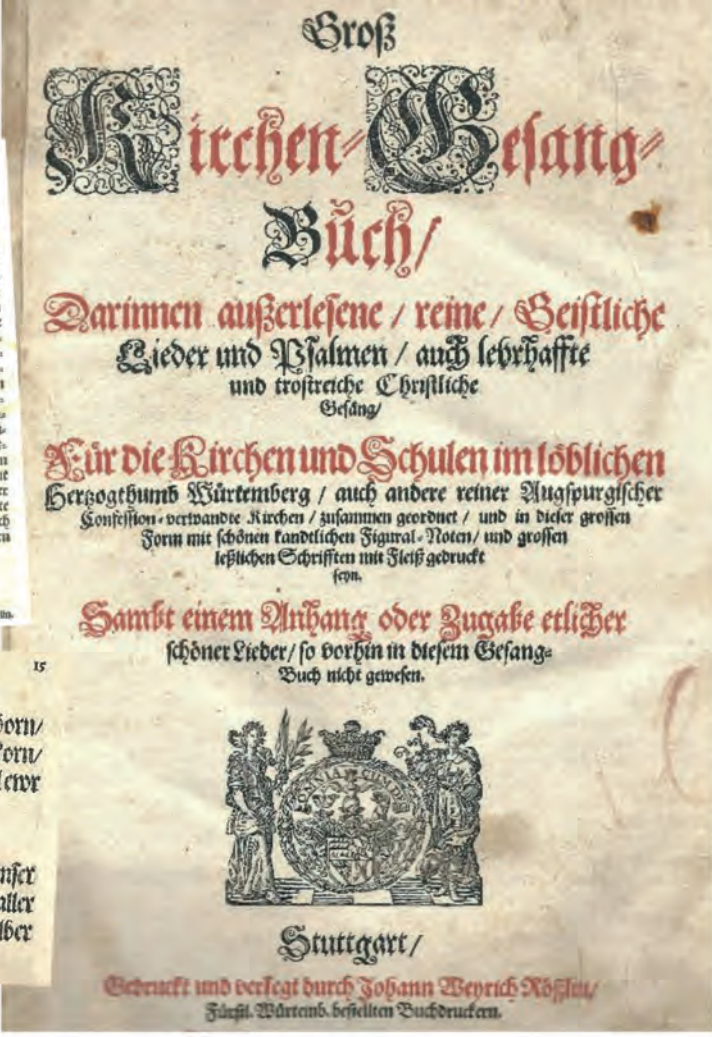 Groß
Kirchen-Gesang-
Bůch/
Darinnen außerlesene / reine / Geistliche
Lieder und Psalmen / auch lehrhaffte
und trostreiche Christliche
Gesäng/
Für die Kirchen und Schulen im löblichen
Hertzogthumb Würtemberg / auch andere reiner Augspurgischer
Confession-verwandte Kirchen / zusammen geordnet / und in dieser grossen
Form mit schönen kandtlichen Figural-Noten/ und grossen
leßlichen Schrifften mit Fleiß gedruckt
seyn.
Sambt einem Anhang oder Zugabe etlicher
schöner Lieder/ so vorhin in diesem Gesang-
Buch nicht gewesen.
OMNIA CUM DEO
Stuttgart/
Gedruckt und verlegt durch Johann Weyrich Rößlin/
Fürstl. Würtemb. bestellten Buchdruckern.
15
orn/
orn/
ewr
nser
aller
lber